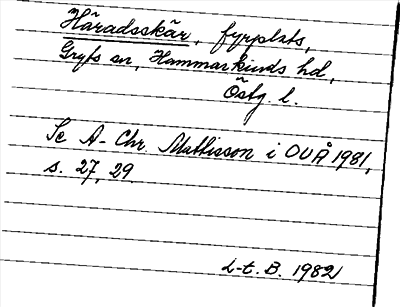 Häradsskär, fyrplats,
Gryts sn, Hammarkinds hd,
Östg. l.
Se A-Chr. Mattisson i OUÅ 1981,
s. 27, 29
L-t. B. 1982